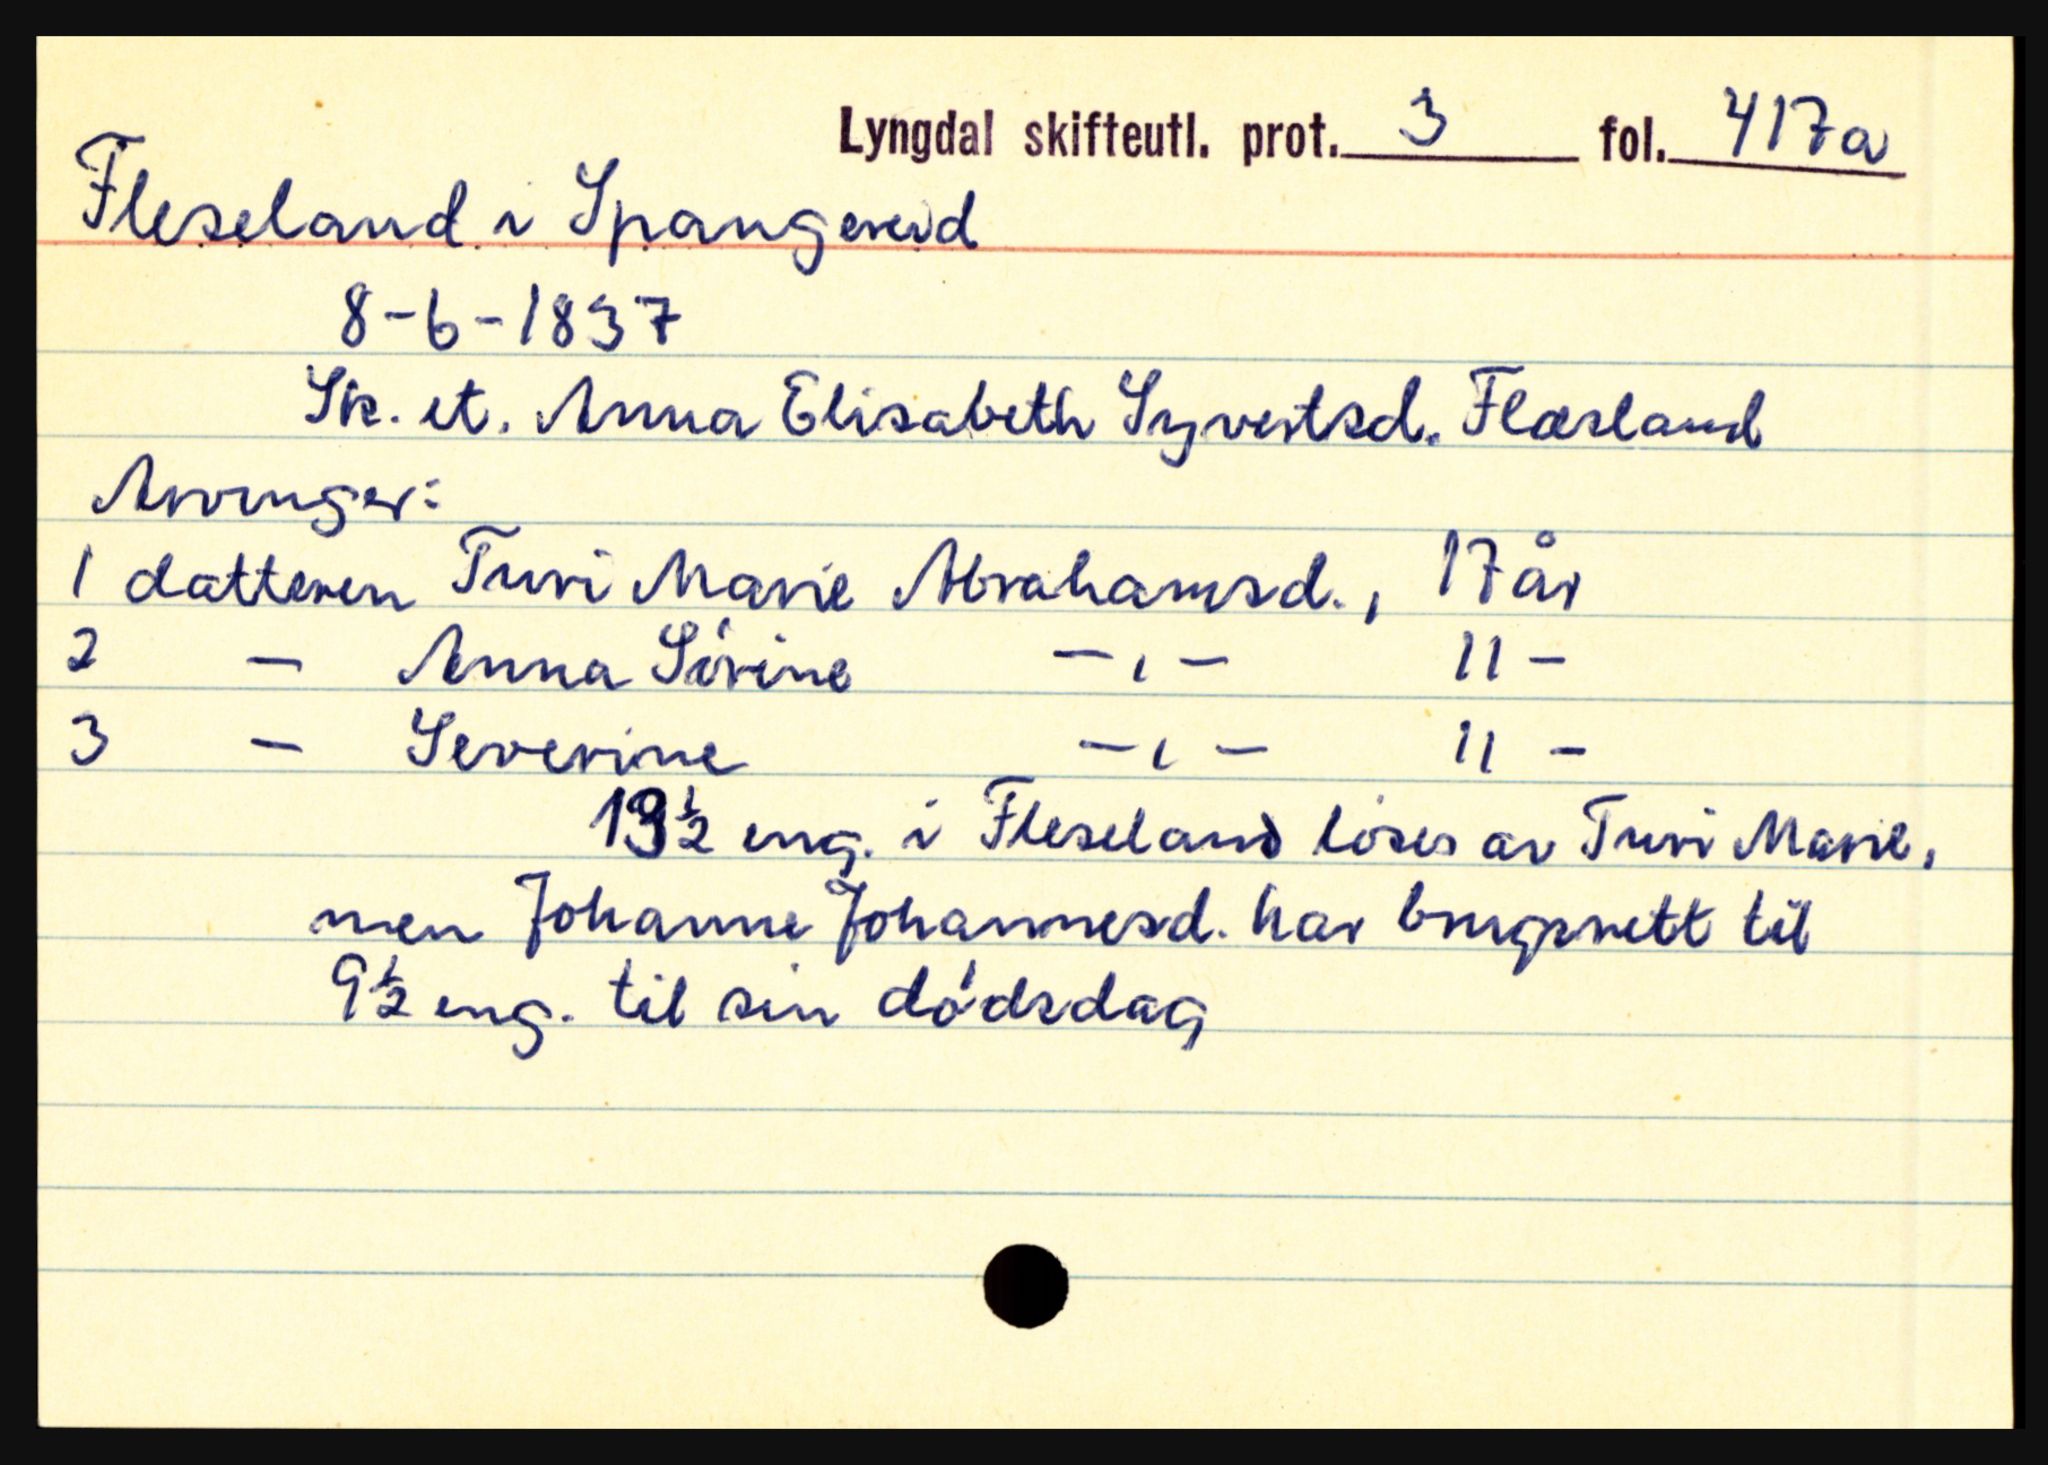 Lyngdal skifteutl. prot. 3 fol. 417a
Fleseland i Spangereid
8-6-1837
Sk. et. Anna Elisabeth Syvertsd. Flæsland
Arvinger:
1 datteren Turi Marie Abrahamsd., 17 år
2 — Anna Sørine —,— 11 —
3 — Severine —,— 11 —
13½ eng. i Fleseland løses av Turi Marie,
men Johanne Johannesd. har brugsrett til
9½ eng. til sin dødsdag